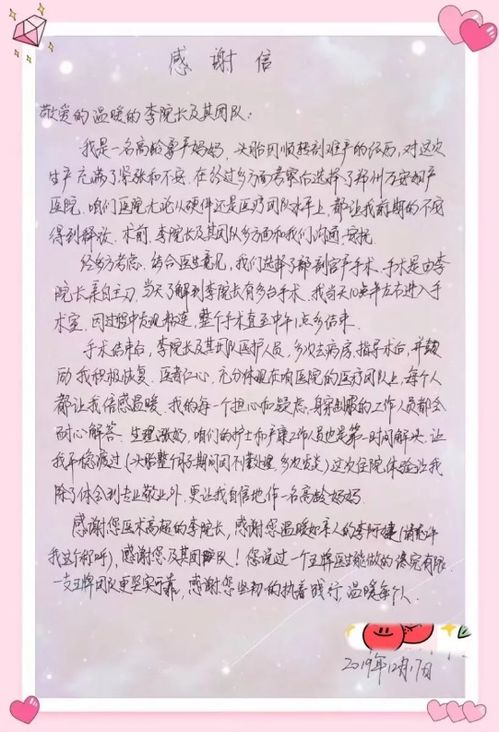 感谢信
敬爱的温暖的李院长及其团队：
我是一名高龄二产妈妈，头胎因顺转剖难产的经历，对这次
生产充满了紧张和不安。在经过多方面考察后选择了郑州万安妇产
医院，咱们医院无论从硬件还是医疗团队水平上，都让我前期的不安
得到释放。术前，李院长及其团队多方面和我们沟通，安抚。
经多方考虑，结合医生意见，我们选择了剖宫产手术，手术是由李
院长亲自主刀，当天了解到李院长有多台手术，我当天10点半左右进入手
术室，因过程中发现粘连，整个手术直至中午1点多结束。
手术结束后，李院长及其团队医护人员，多次去病房，指导术后，并鼓
励我积极恢复。医者仁心，充分体现在咱医院的医疗团队上，每个人
都让我倍感温暖，我的每一个担心和疑虑，身穿制服的工作人员都会
耐心解答。生理涨奶，咱们的护士和产康工作人员也是第一时间解决，让
我平稳渡过（头胎整个月子期间因不懂处理，多次发炎）这次住院体验让我
除了体会到专业敬业外，更让我自信地作一名高龄妈妈。
感谢您医术高超的李院长，感谢您温暖如亲人的李阿
我这个称呼），感谢您及其团队！您说过一个王牌医生能做的终究有限
一支王牌团队更坚实可靠，感谢您当初的执着践行，温暖每个人。
2019年12月17日